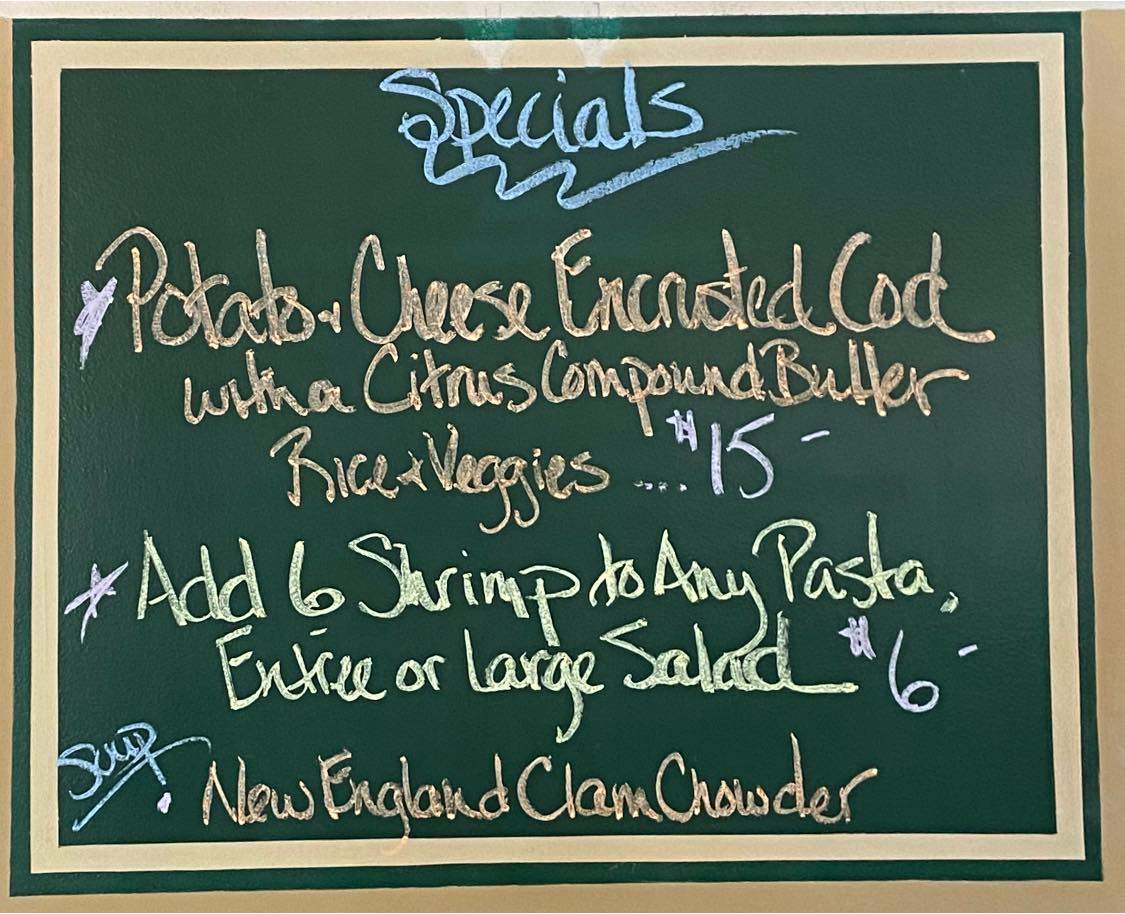 Specials
Potato & Cheese Encrusted Cod
with a Citrus Compound Butter
Rice & Veggies .... $15-
Add 6 Shrimp to Any Pasta,
Entree or Large Salad $6-
Soup
New England Clam Chowder